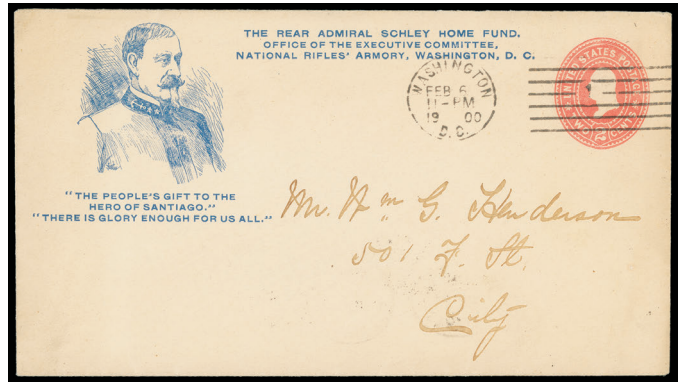 THE REAR ADMIRAL SCHLEY HOME FUND.
OFFICE OF THE EXECUTIVE COMMITTEE,
NATIONAL RIFLES' ARMORY, WASHINGTON, D. C.
WASHINGTON
FEB 6
11-PM
19 00
D.C.
UNITED STATES POSTAGE
TWO 2 CENTS
"THE PEOPLE'S GIFT TO THE
HERO OF SANTIAGO."
"THERE IS GLORY ENOUGH FOR US ALL."
Mr. Wm G. Henderson
501 F. St.
City